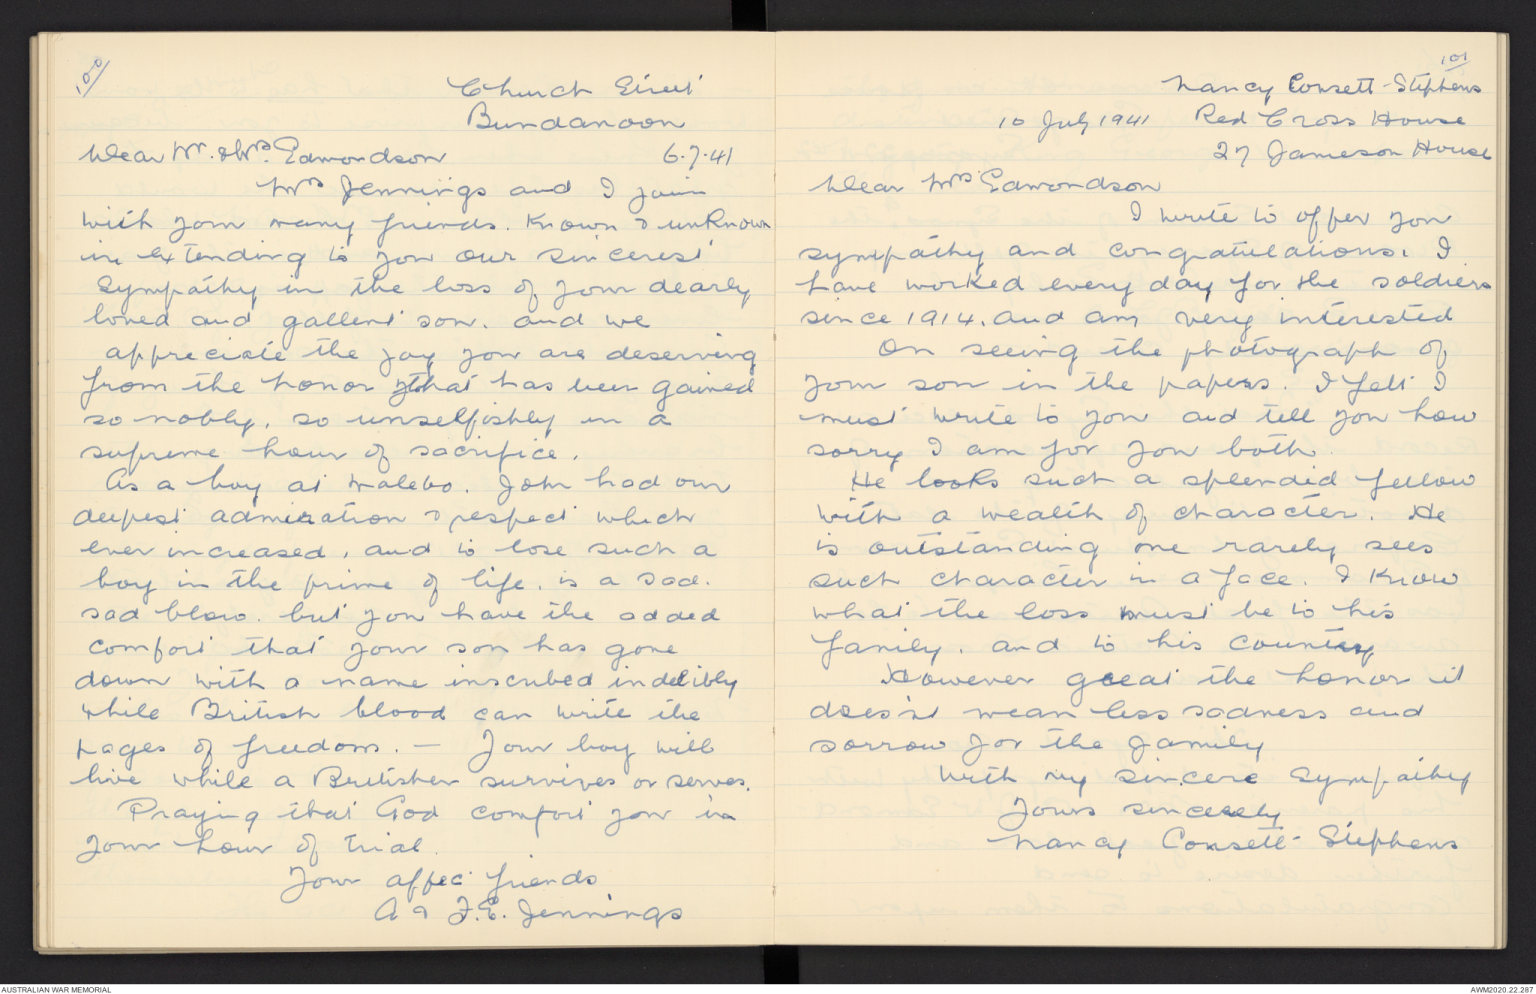 100
Church Street
Bundanoon
Dear Mr. & Mrs. Edmondson 6.7.41
Mrs Jennings and I join
with your many friends. Known & unknown
in extending to you our sincerest
sympathy in the loss of your dearly
loved and gallent son. and we
appreciate the joy you are deserving
from the honor that has been gained
so nobly, so unselfishly in a
supreme hour of sacrifice.
As a boy at Walebo. John had our
deepest admiration & respect which
ever increased, and to lose such a
boy in the prime of life. is a sad.
sad blow. but you have the added
comfort that your son has gone
down with a name inscribed indelibly
while British blood can write the
pages of freedom. — Your boy will
live while a Britisher survives or serves.
Praying that God comfort you in
your hour of trial.
Your affec friends
A & F.E. Jennings
101
Nancy Consett-Stephens
10 July 1941 Red Cross House
27 Jameson House
Dear Mrs Edmondson
I write to offer you
sympathy and congratulations. I
have worked every day for the soldiers
since 1914. and am very interested
On seeing the photograph of
your son in the papers. I felt I
must write to you and tell you how
sorry I am for you both.
He looks such a splendid fellow
with a wealth of character. He
is outstanding one rarely sees
such character in a face. I know
what the loss must be to his
family. and to his country
However great the honor it
does'nt mean less sadness and
sorrow for the family
With my sincere sympathy
Yours sincerely
Nancy Consett-Stephens
AUSTRALIAN WAR MEMORIAL
AWM2020.22.287